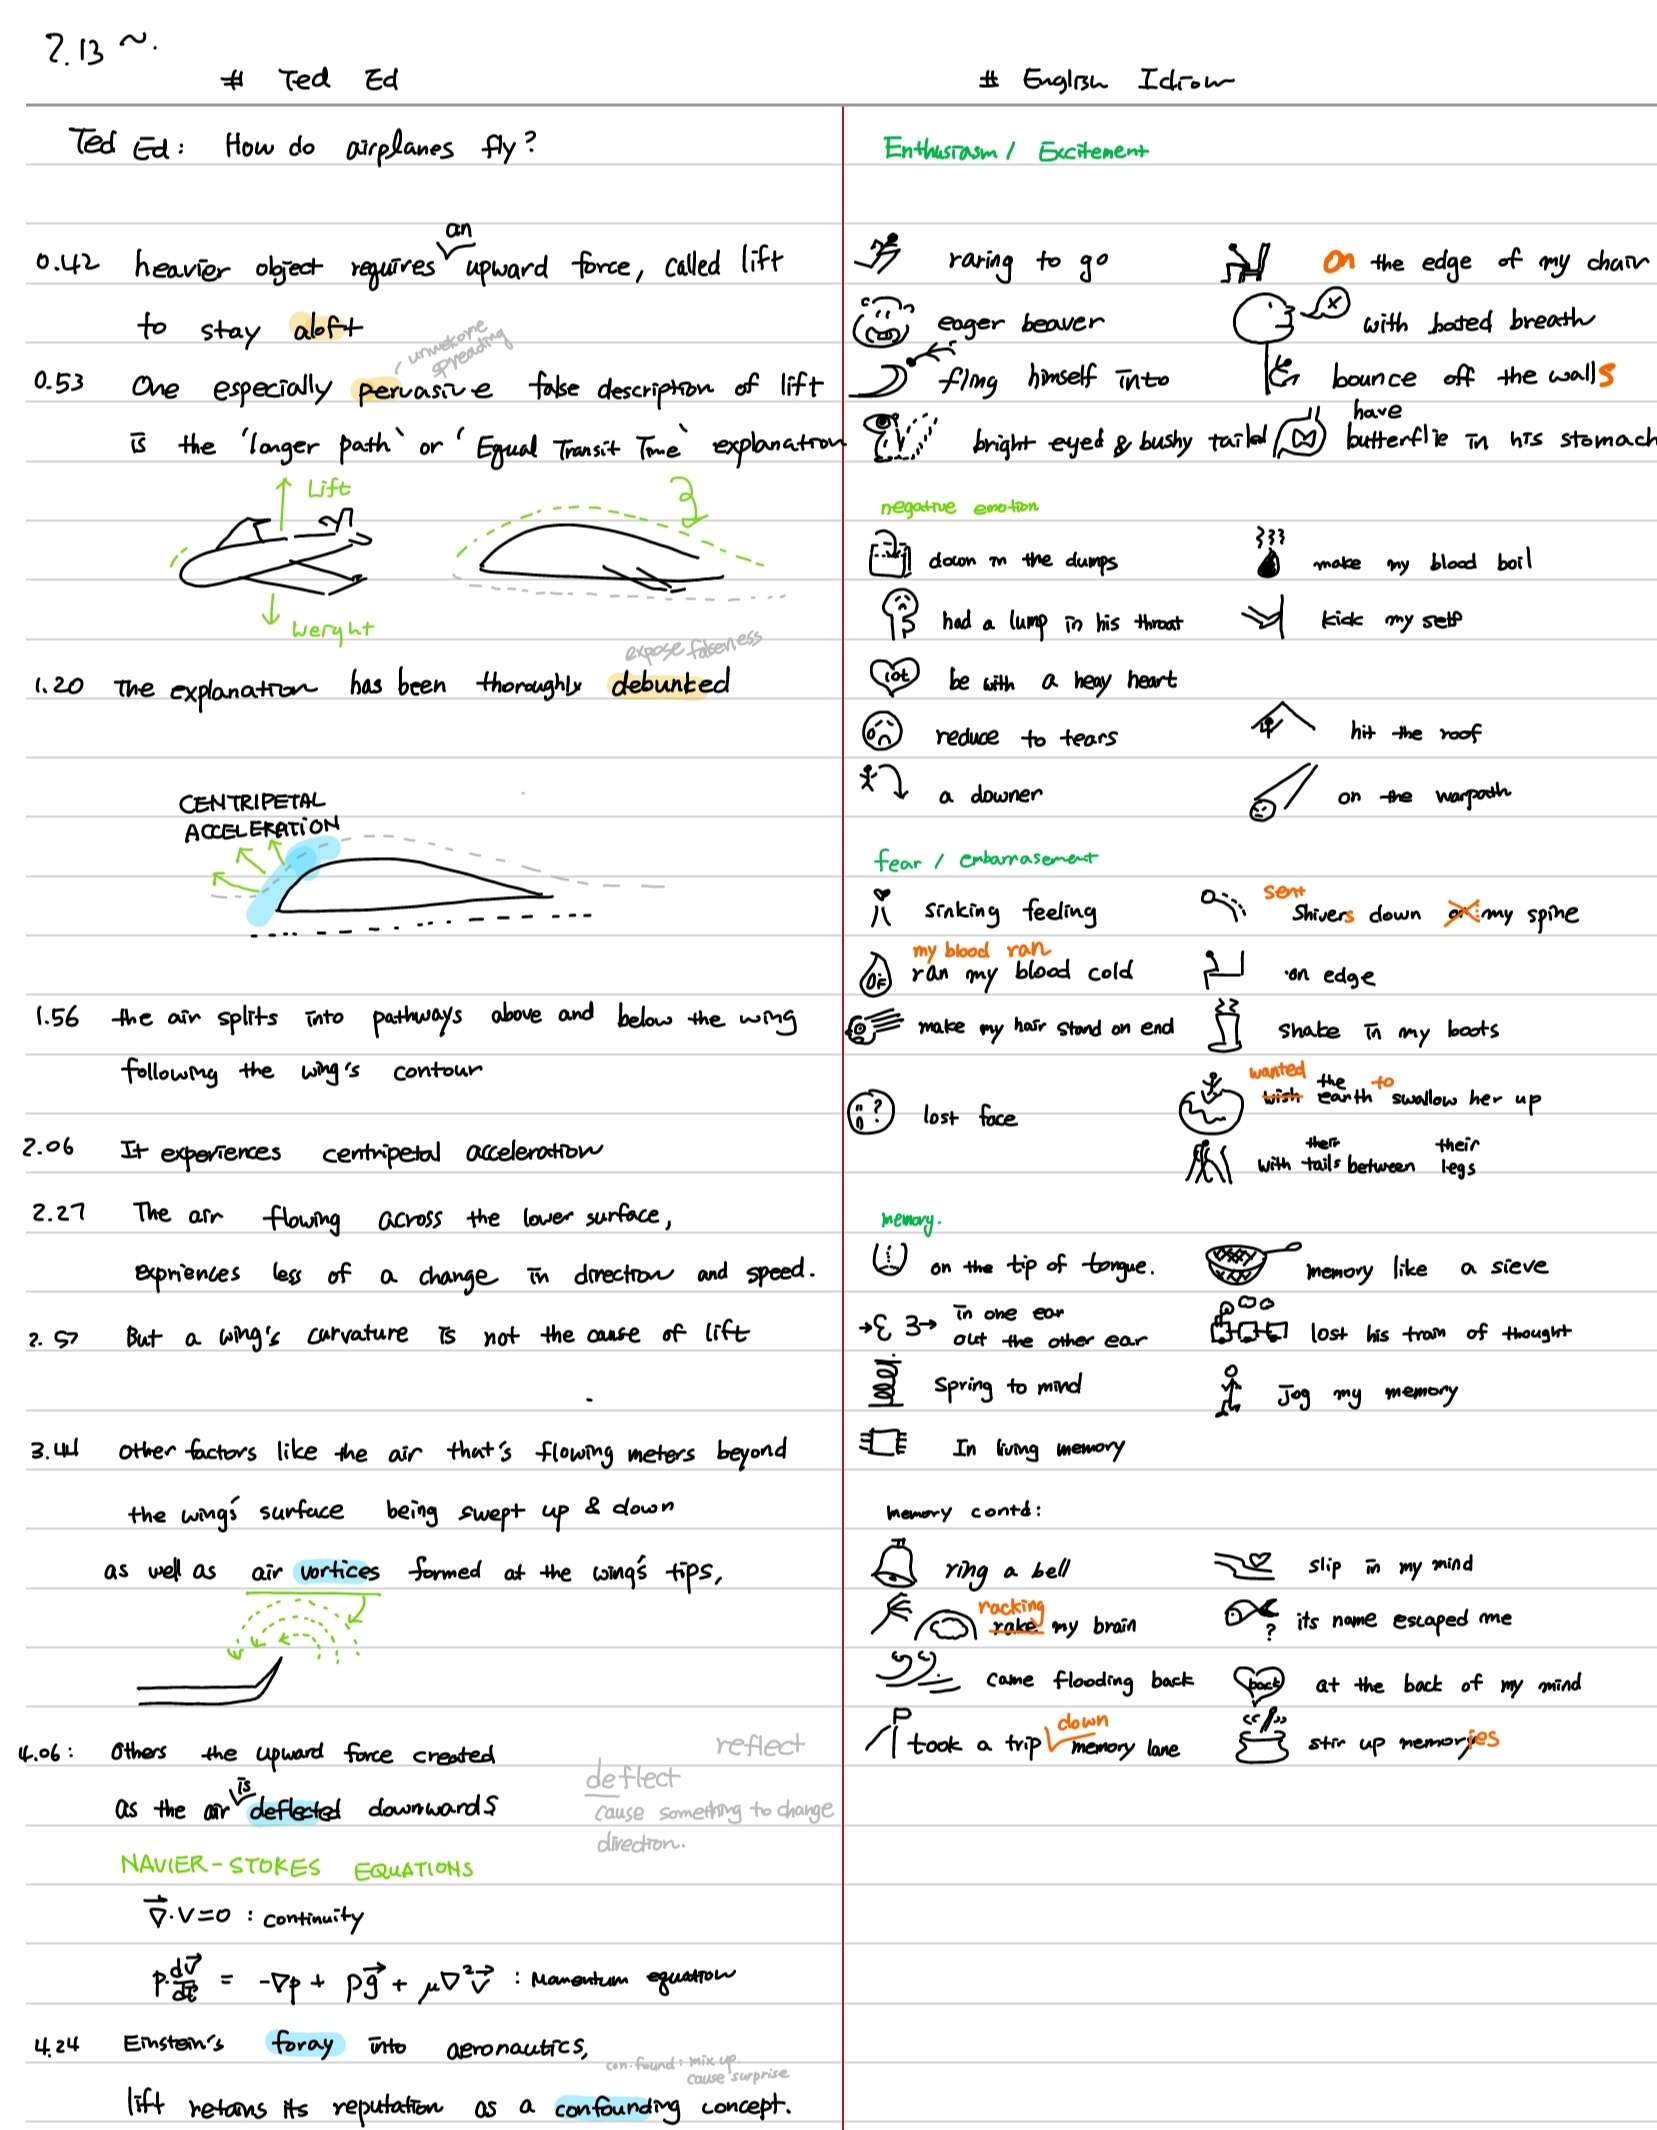 2.13 ~.
# Ted Ed
Ted Ed: How do airplanes fly?
an
0.42 heavier object requires upward force, called lift
to stay aloft
unwelcome
spreading
0.53 One especially pervasive false description of lift
is the 'longer path' or 'Equal Transit Time' explanation
Lift
Weight
expose falseness
1.20 The explanation has been thoroughly debunked
CENTRIPETAL
ACCELERATION
1.56 the air splits into pathways above and below the wing
following the wing's contour
2.06 It experiences centripetal acceleration
2.27 The air flowing across the lower surface,
expriences less of a change in direction and speed.
2.57 But a wing's curvature is not the cause of lift
3.44 other factors like the air that's flowing meters beyond
the wing's surface being swept up & down
as well as air vortices formed at the wing's tips,
4.06: Others the upward force created
is
as the air deflected downwards
reflect
deflect
cause something to change
direction.
NAVIER-STOKES EQUATIONS
∇·V=0 : continuity
ρ·dv/dt = -∇p + ρg + μ∇²v : Momentum equation
4.24 Einstein's foray into aeronautics,
con.found: mix up
cause surprise
lift retains its reputation as a confounding concept.
# English Idiom
Enthusiasm / Excitement
raring to go
on the edge of my chair
eager beaver
with bated breath
fling himself into
bounce off the walls
bright eyed & bushy tailed
have
butterflie in his stomach
negative emotion
down in the dumps
make my blood boil
had a lump in his throat
kick my self
be with a heay heart
reduce to tears
hit the roof
a downer
on the warpath
fear / embarrasement
sinking feeling
sent
shivers down on my spine
my blood ran
ran my blood cold
on edge
make my hair stand on end
shake in my boots
lost face
wanted the to
wish earth swallow her up
their their
with tails between legs
memory.
on the tip of tongue.
memory like a sieve
in one ear
out the other ear
lost his train of thought
Spring to mind
jog my memory
In living memory
memory contd:
ring a bell
slip in my mind
racking
rake my brain
?
its name escaped me
came flooding back
back
at the back of my mind
P
down
took a trip memory lane
stir up memories